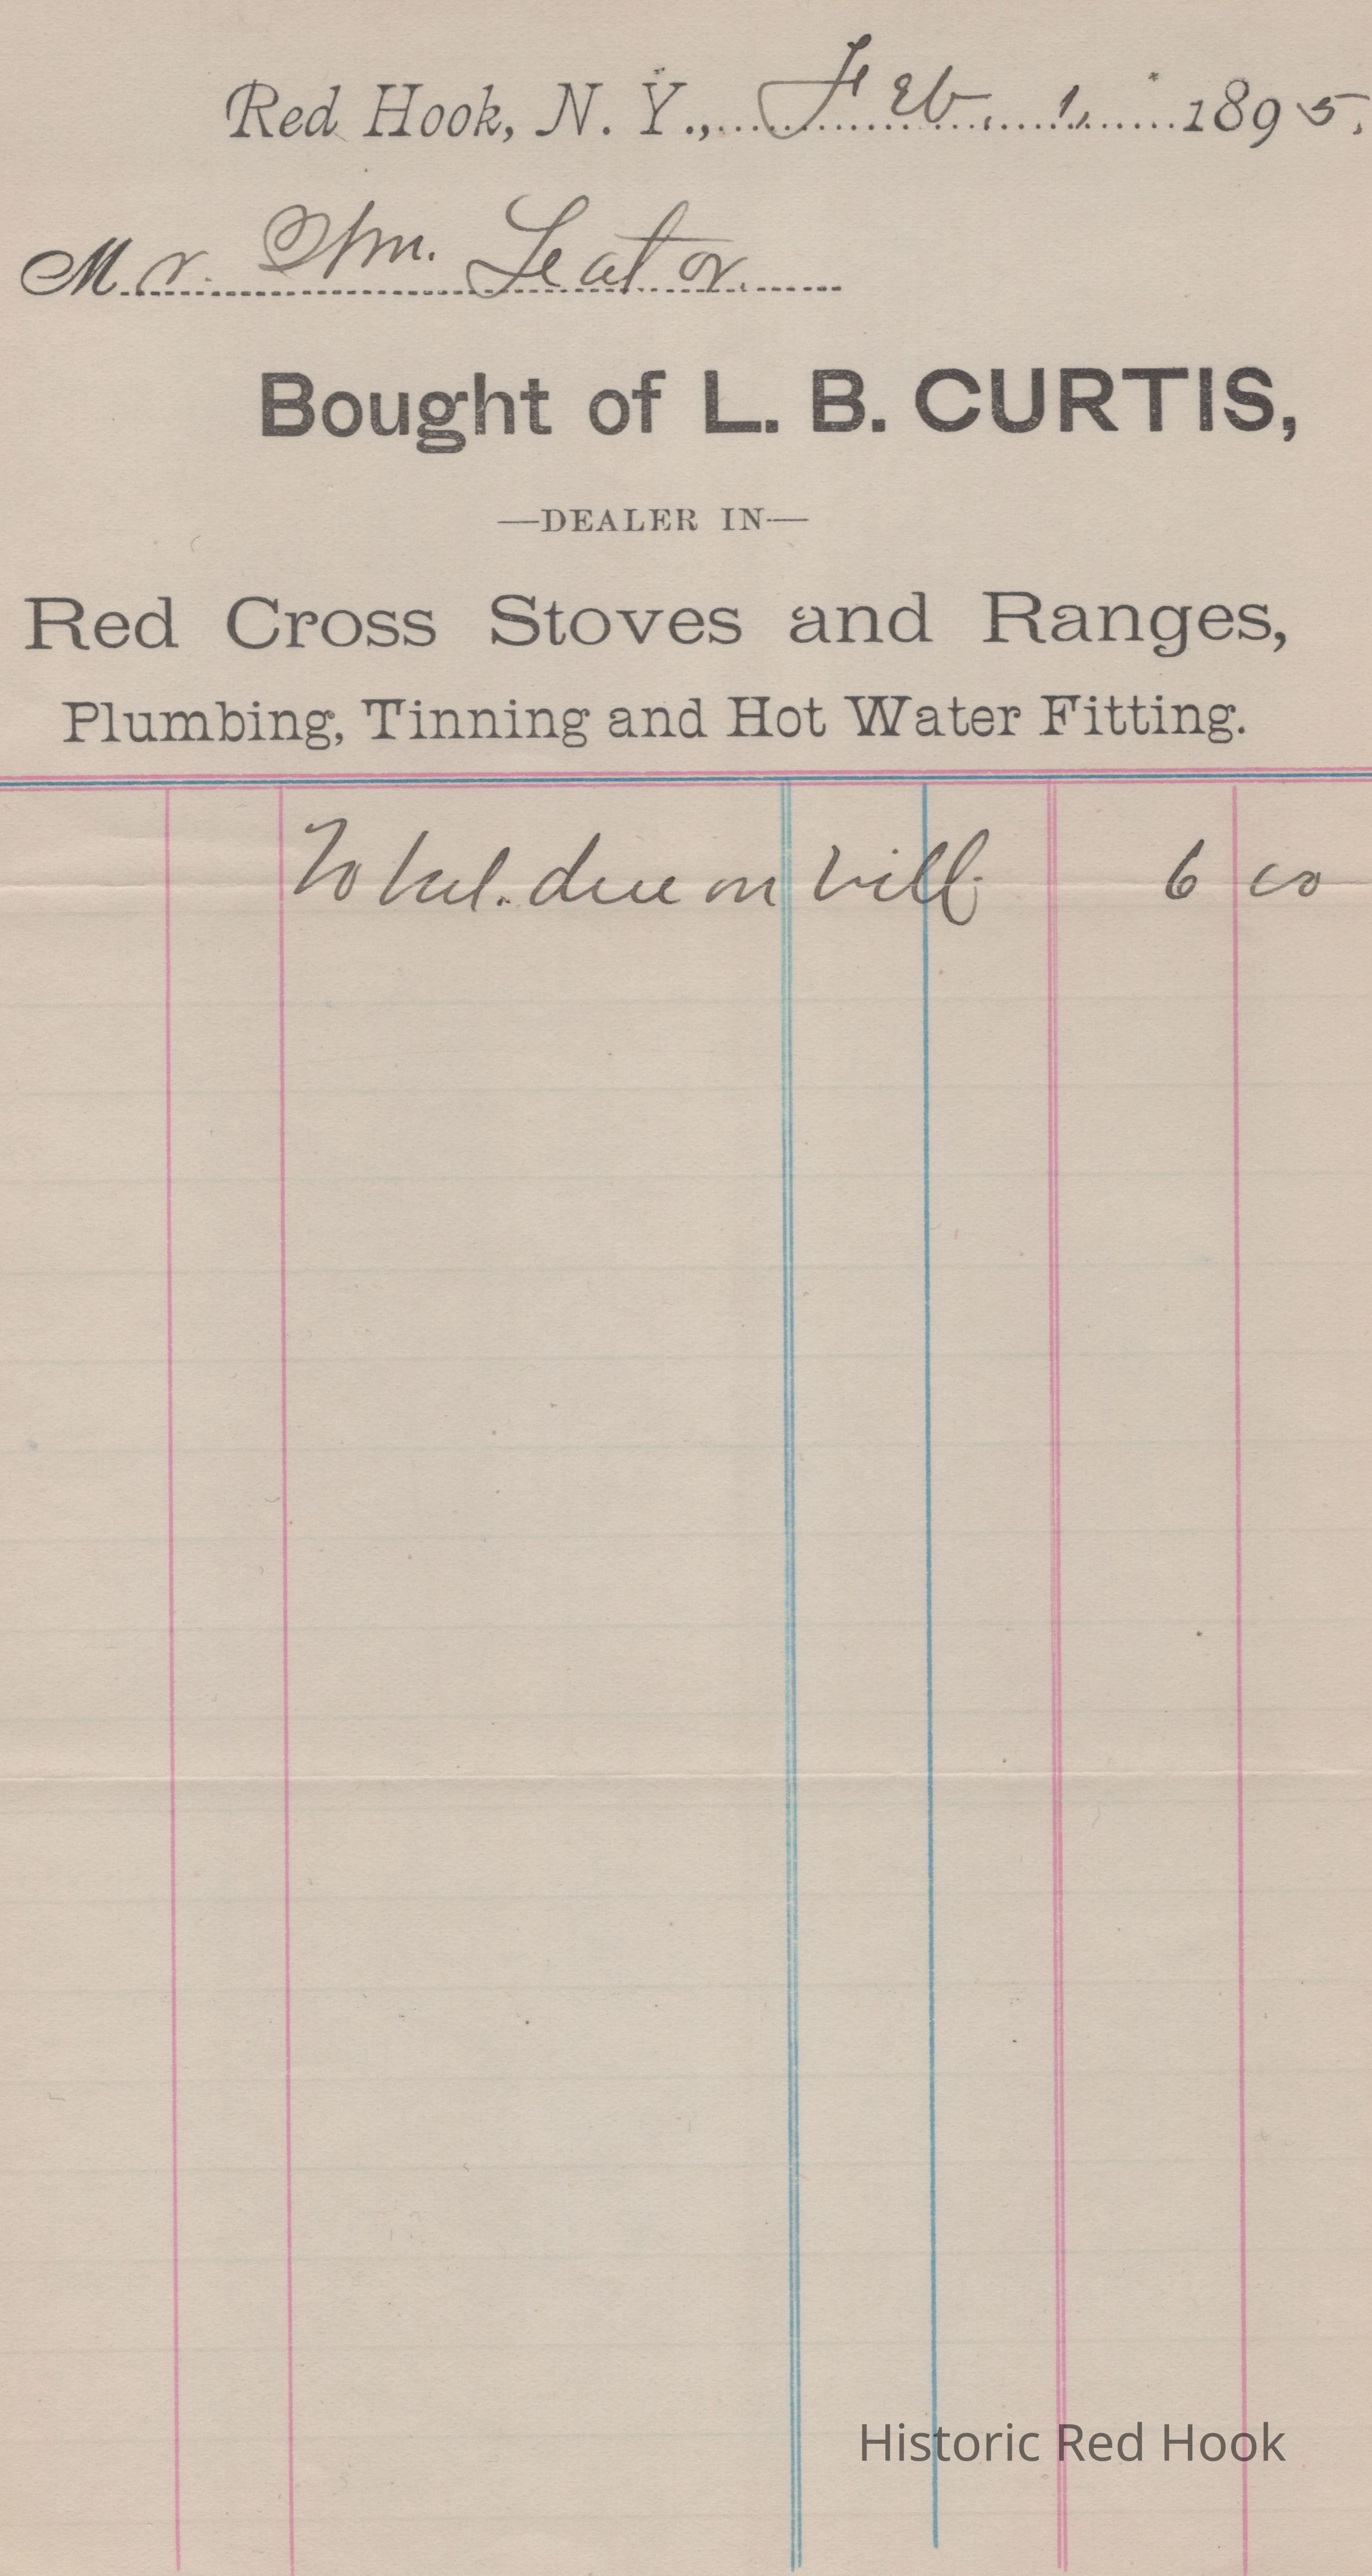 Red Hook, N. Y., Feb. 1, 1895.
Mr. Wm. Seator.
Bought of L. B. CURTIS,
—DEALER IN—
Red Cross Stoves and Ranges,
Plumbing, Tinning and Hot Water Fitting.
To bal. due on bill 6 00
Historic Red Hook